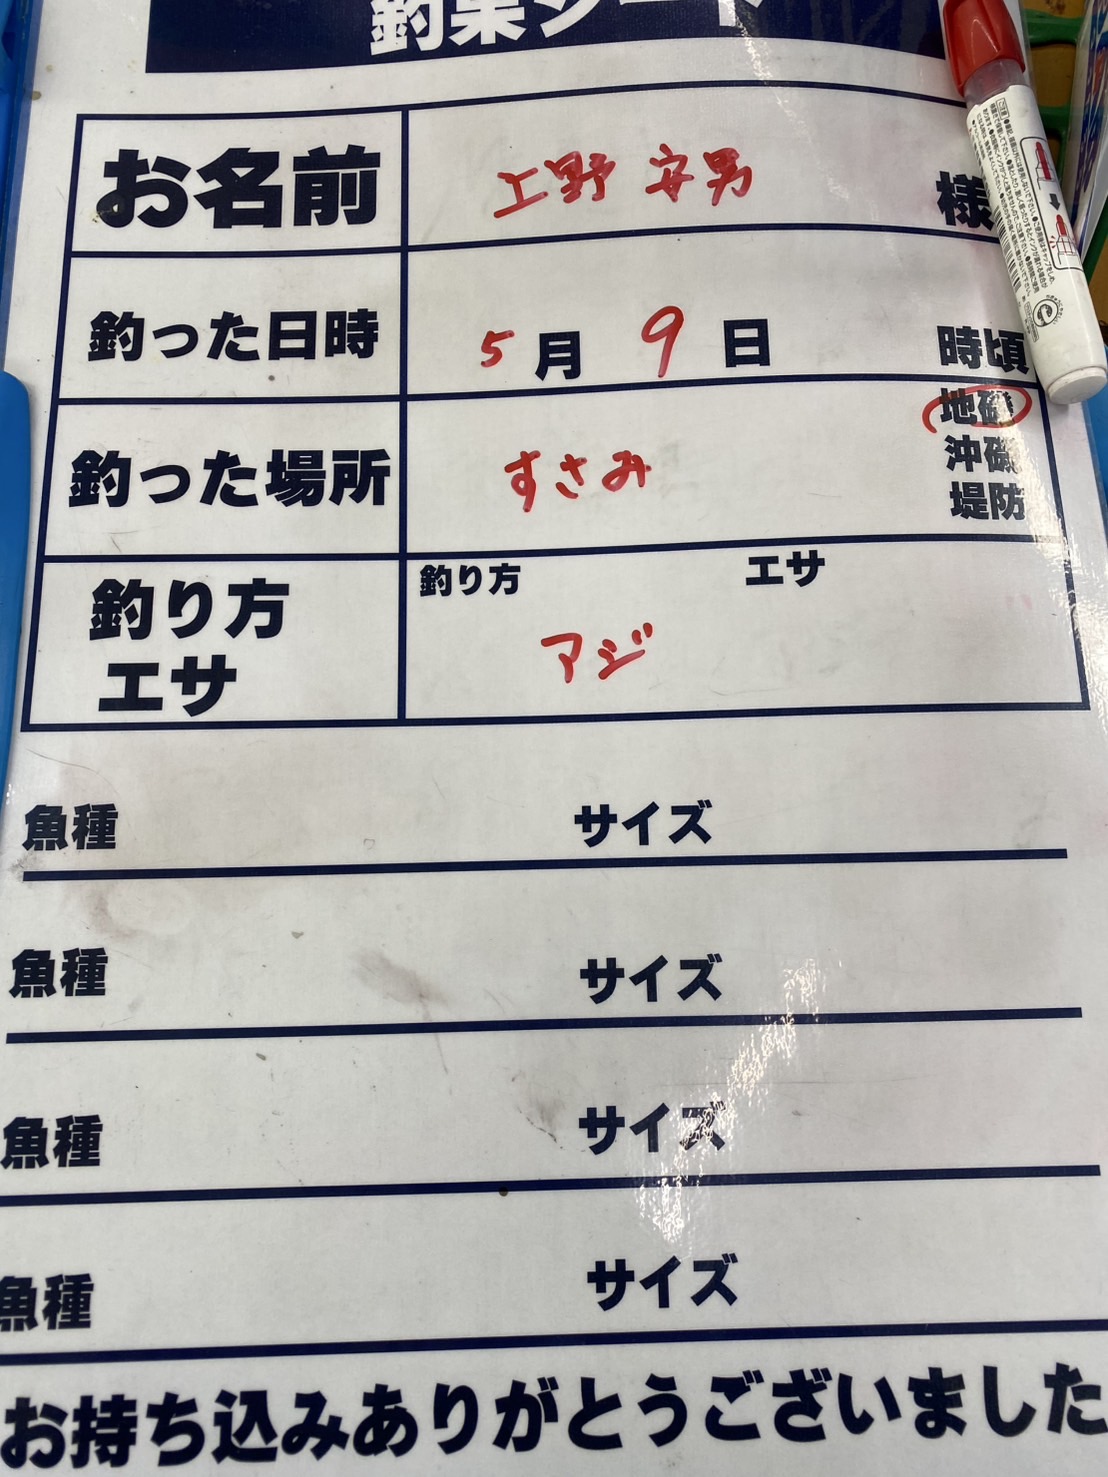 釣果シート
お名前 上野 安男 様
釣った日時 5月 9日 時頃
釣った場所 すさみ 地磯
沖磯
堤防
釣り方 エサ
釣り方
エサ
アジ
魚種 サイズ
魚種 サイズ
魚種 サイズ
魚種 サイズ
お持ち込みありがとうございました